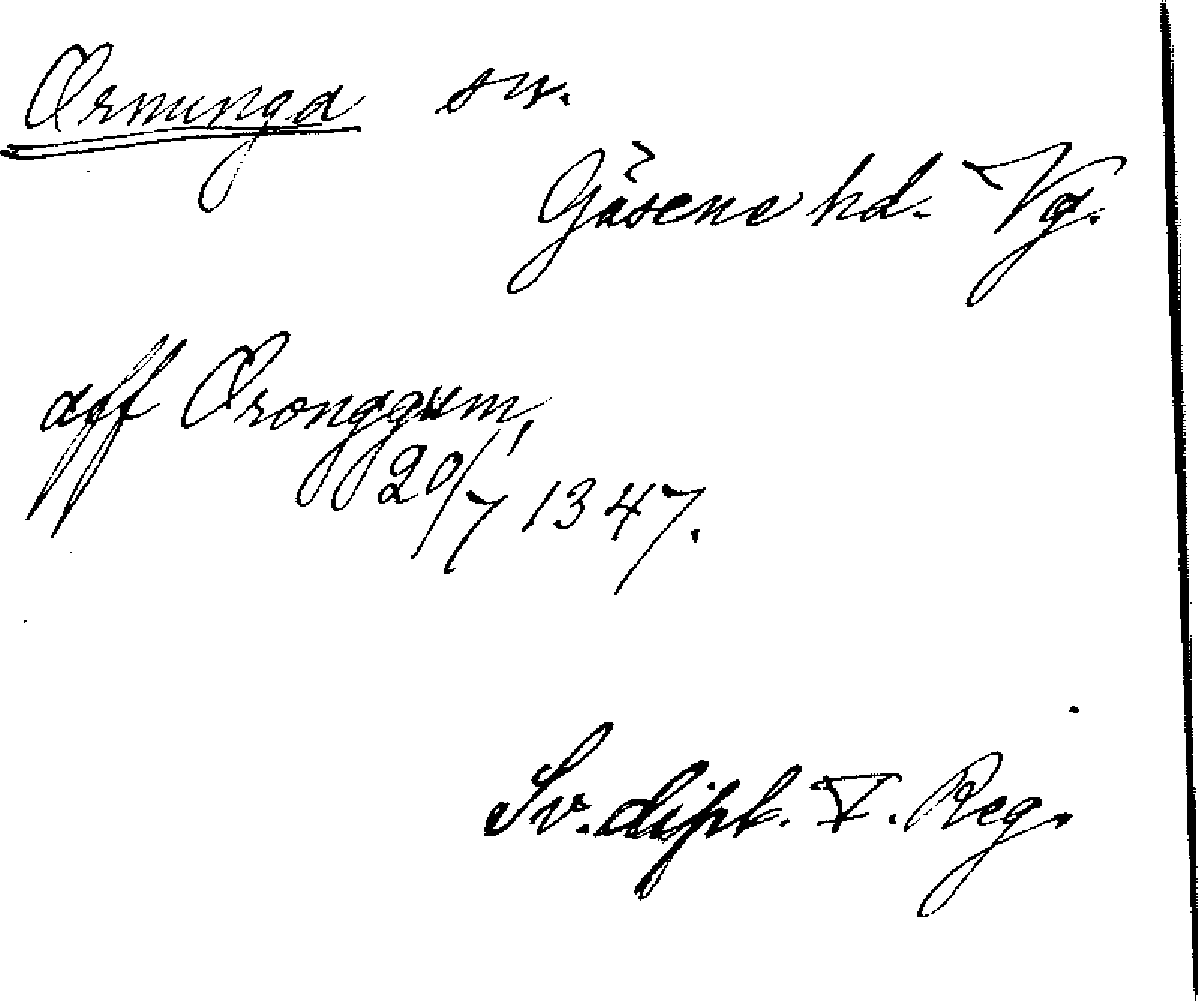 Ormunga sn.
Gäsene hd. Vg.
aff Oronggum,
20/7 1347.
Sv. dipl. V. Reg.